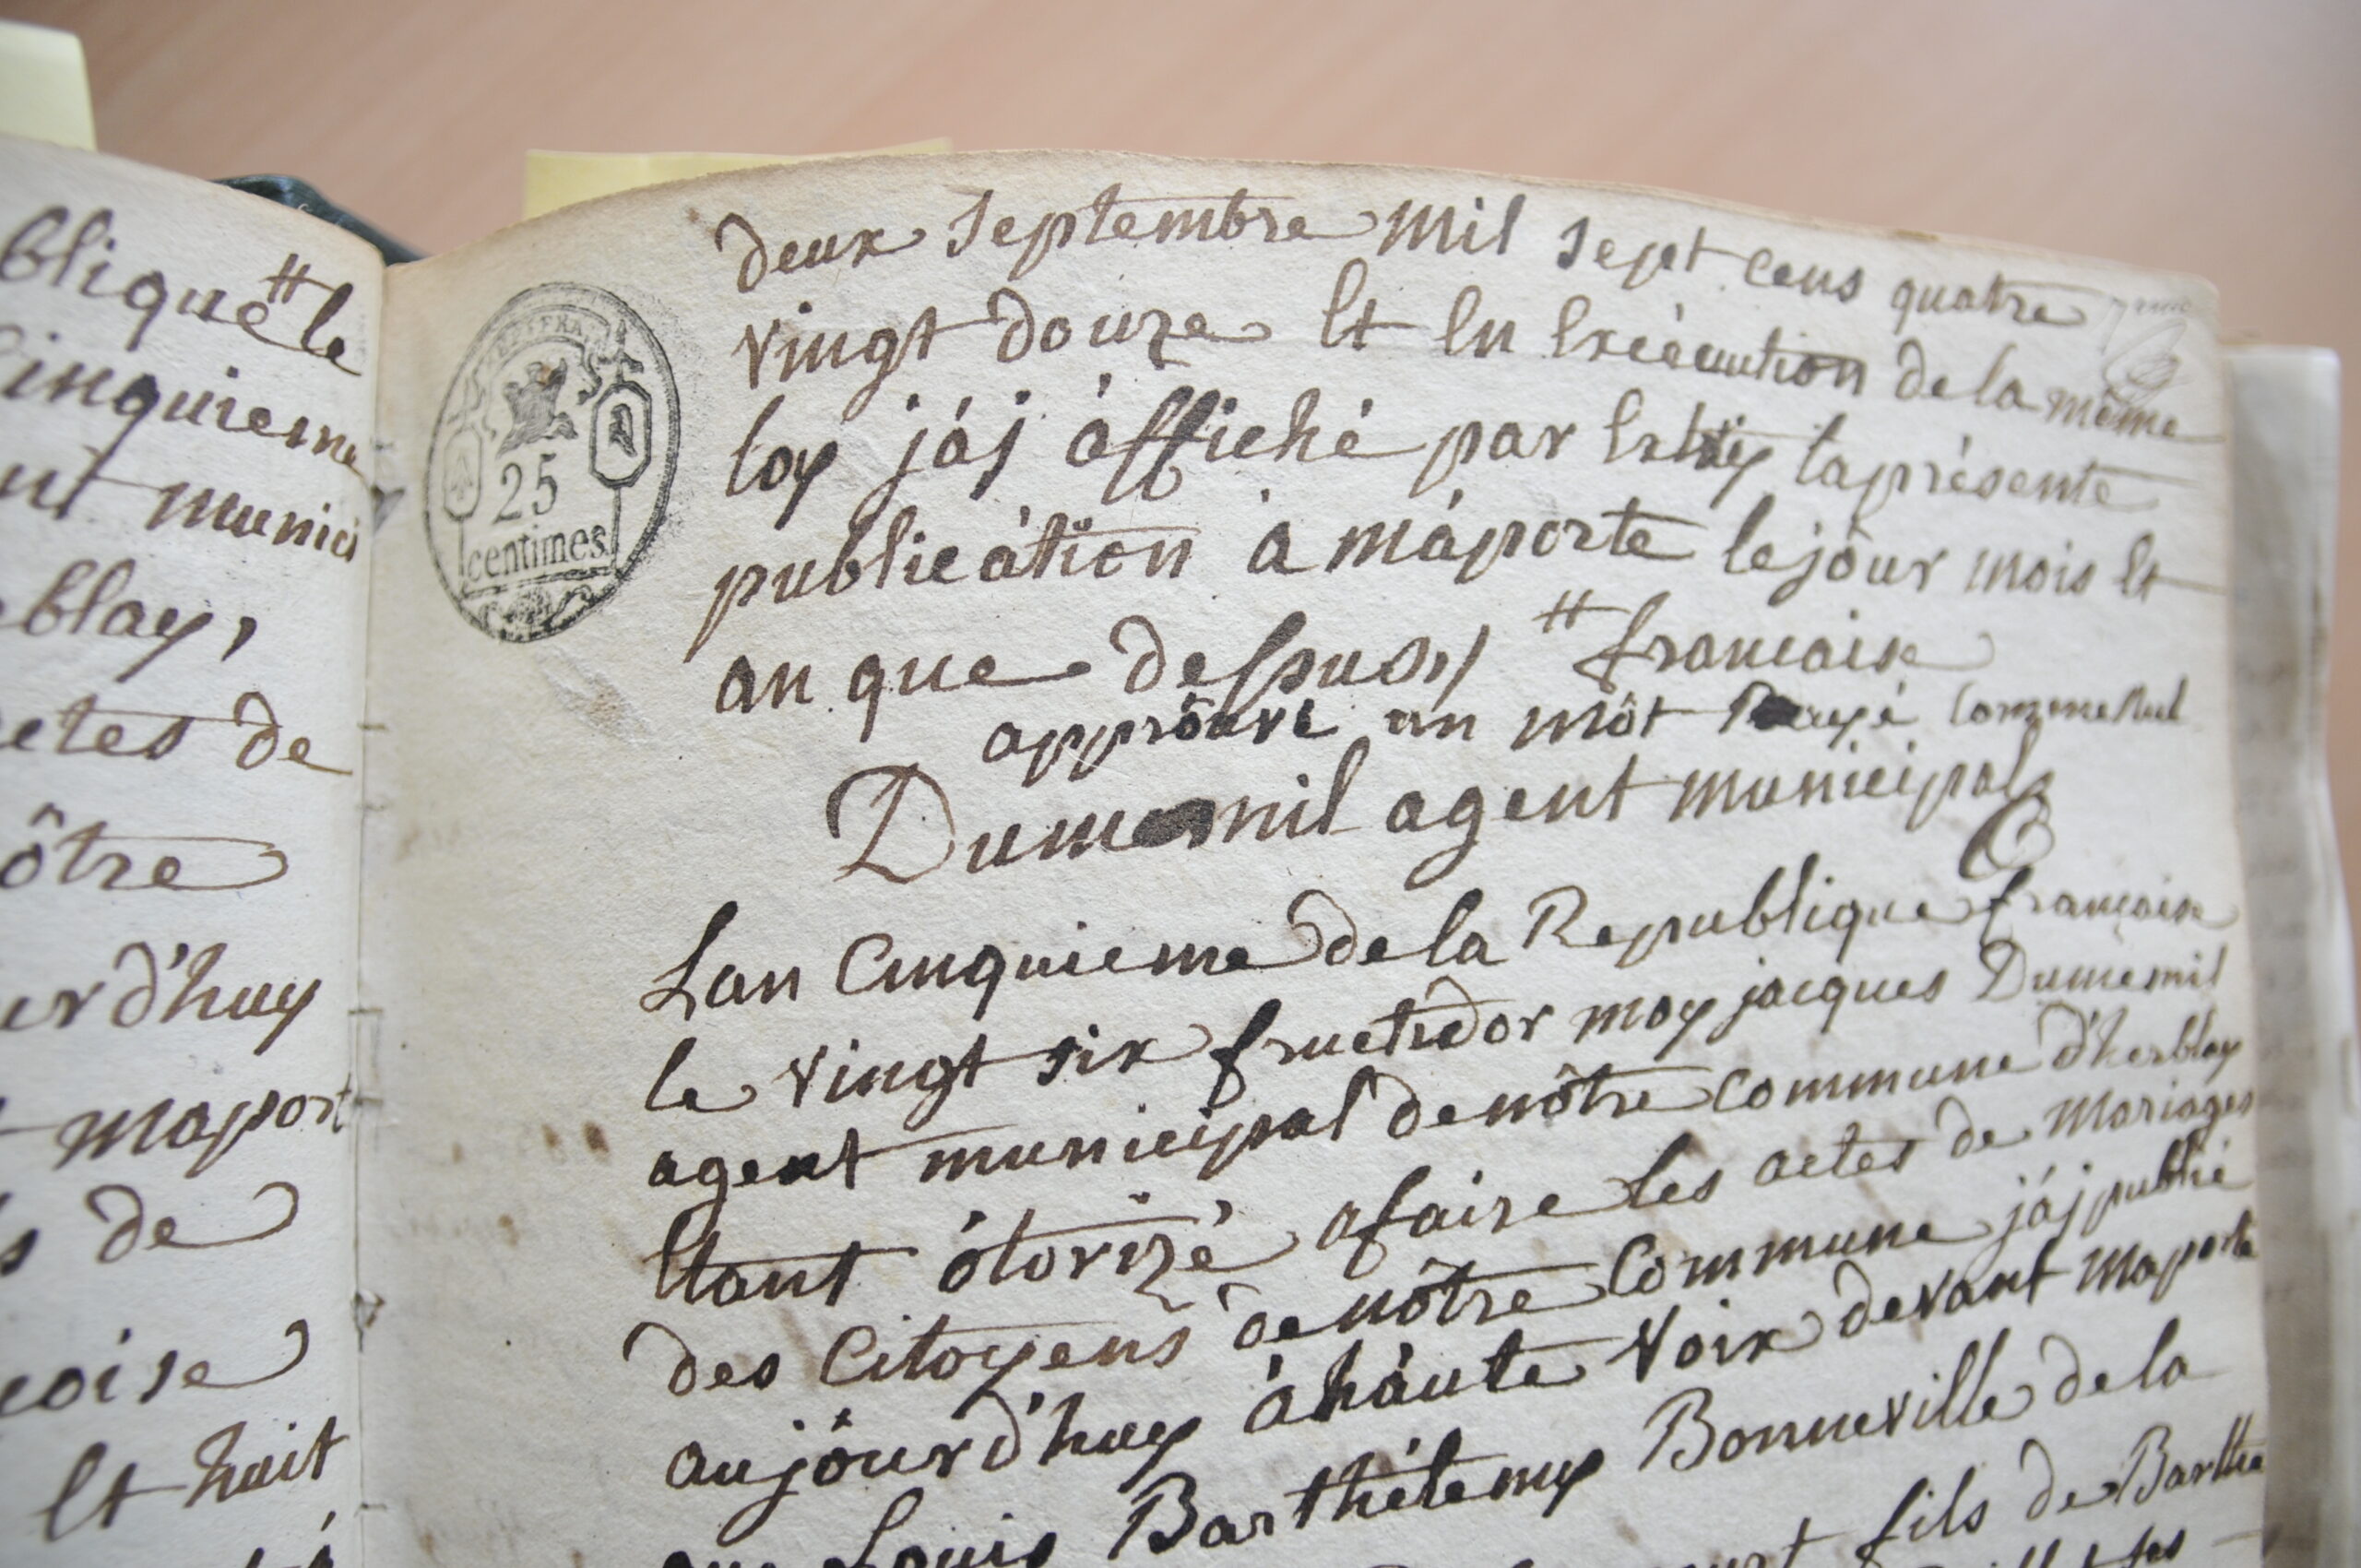 blique ⧺ le
Cinquieme
nt munici
blay,
actes de
ôtre
urd'huy
maport
s de
çoise
Et huit
25
centimes
deux Septembre mil sept cens quatre
vingt douze Et En Exécution de la même
loy j'áj áffiché par Extrij la présente
publicátion a máporte le jour mois Et
an que dessus,/ ⧺ francaise
approuvé un môt Rayé comme nul
Dumesnil agent municipal
Lan Cinquieme de la Republique francaise
le vingt six fructidor moy jacques Dumesnil
agent municipal de nôtre commune d'herblay
Etant ótorizé afaire les actes de Mariages
des Citoyens de nôtre Commune j'áj publié
aujourd'huy áháute Voix devant maporte
que Louis Barthélemy Bonneville de la
fils de Barthe